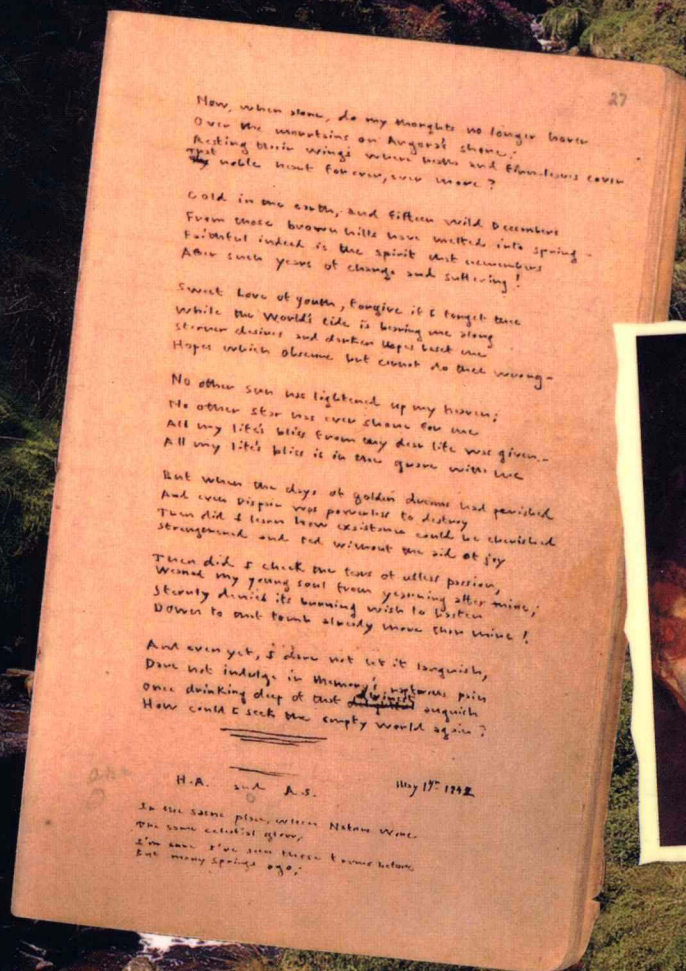 27
Now, when alone, do my thoughts no longer hover
Over the mountains on Angora's shore;
Resting their wings where heath and fern-leaves cover
That noble heart for ever, ever more?
Cold in the earth, and fifteen wild Decembers
From those brown hills have melted into spring -
Faithful indeed is the spirit that remembers
After such years of change and suffering!
Sweet Love of youth, forgive if I forget thee
While the World's tide is bearing me along
Sterner desires and darker Hopes beset me
Hopes which obscure but cannot do thee wrong -
No other sun has lightened up my heaven;
No other star has ever shone for me
All my life's bliss from thy dear life was given -
All my life's bliss is in the grave with thee
But when the days of golden dreams had perished
And even Dispair was powerless to destroy
Then did I learn how existence could be cherished
Strengthened and fed without the aid of joy
Then did I check the tears of useless passion,
Weaned my young soul from yearning after thine;
Sternly denied its burning wish to hasten
Down to that tomb already more than mine!
And even yet, I dare not let it languish,
Dare not indulge in Memory's rapturous pain
Once drinking deep of that divinest anguish
How could I seek the empty world again?
H.A. and A.S. May 17th 1842
In the same place, when Nature wore
The same celestial glow,
I'm sure I've seen these forms before
But many springs ago;